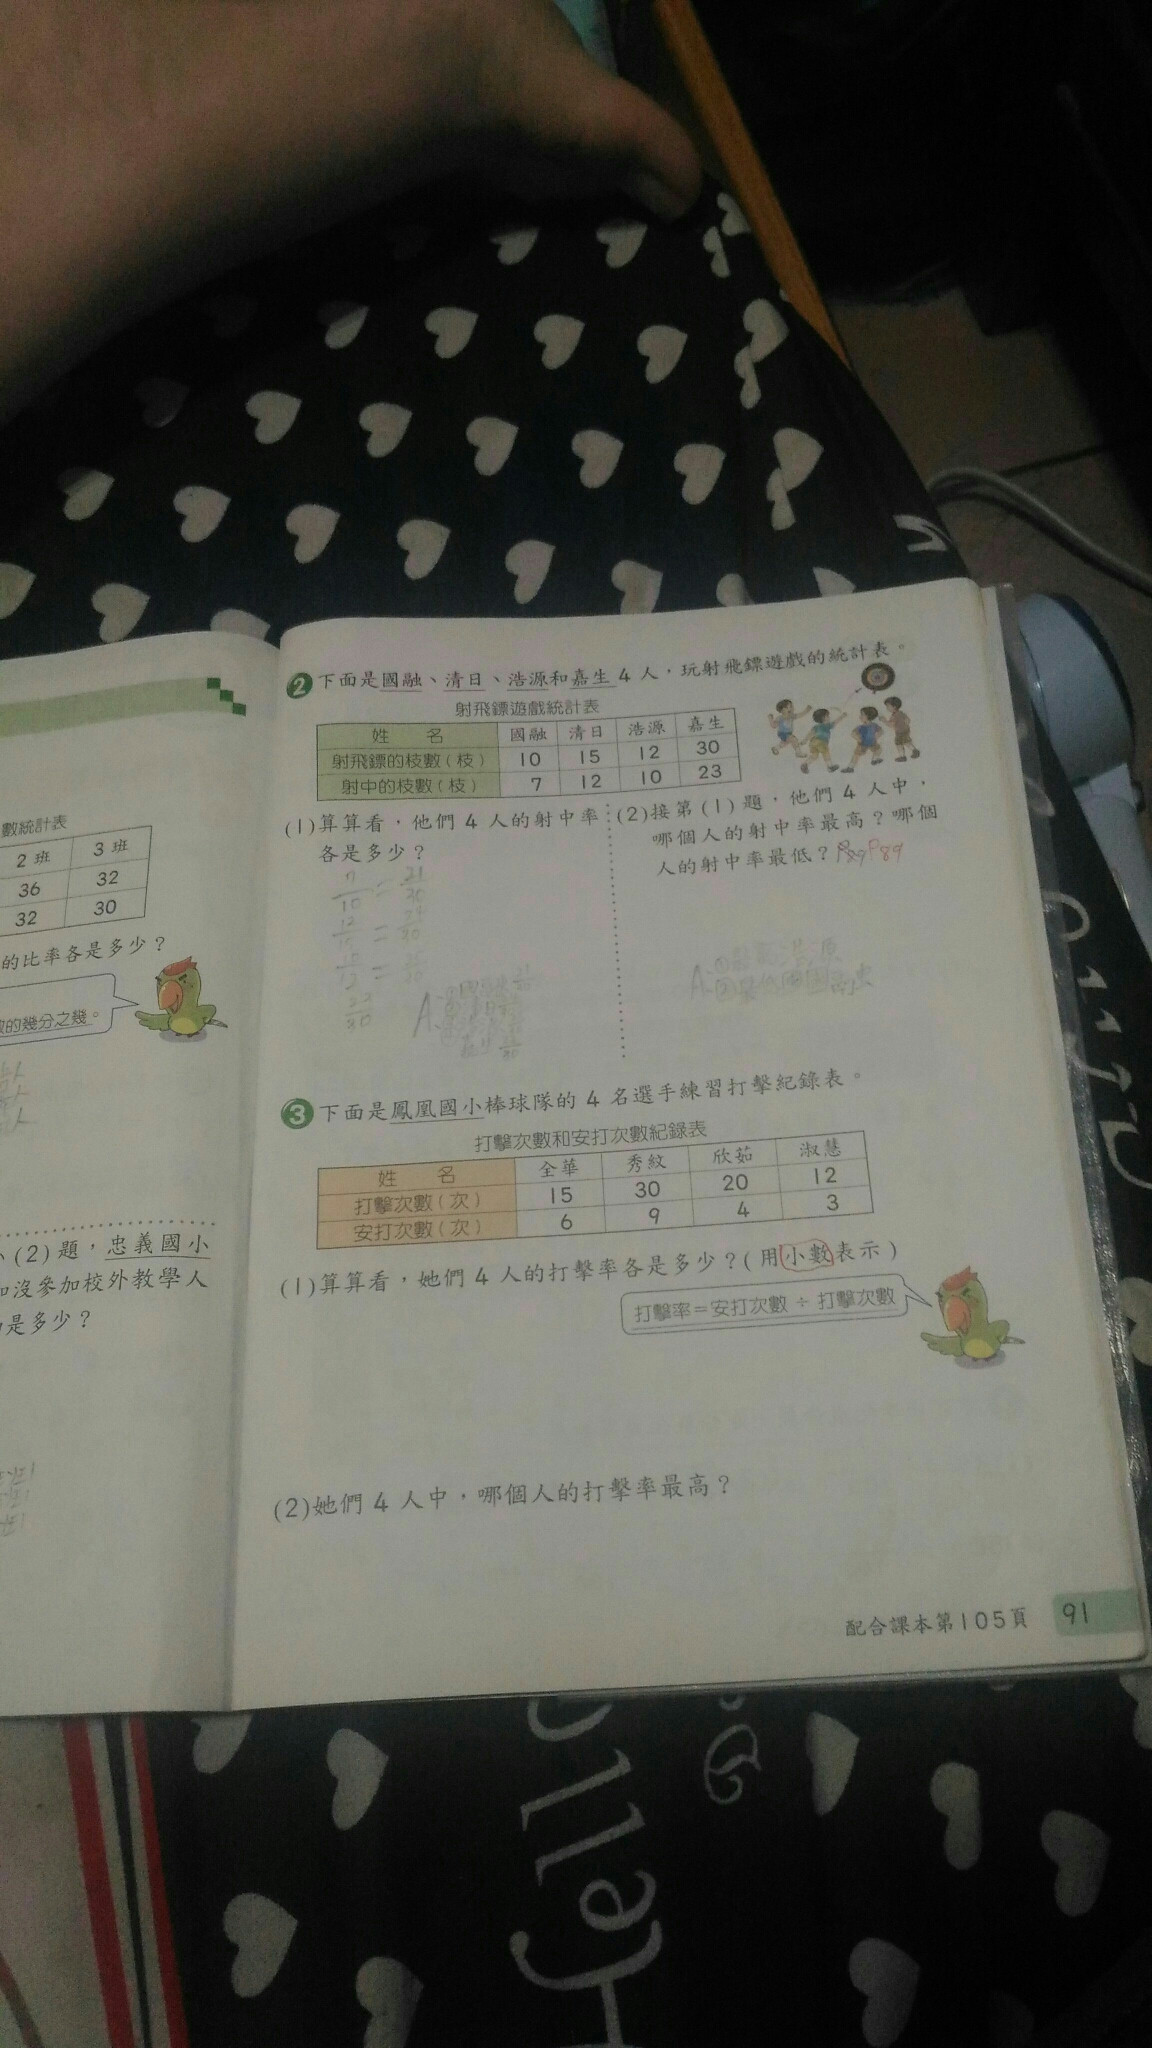 數統計表
2班 3班
36 32
32 30
的比率各是多少？
數的幾分之幾。
(2)題，忠義國小
沒參加校外教學人
是多少？
2 下面是國融、清日、浩源和嘉生4人，玩射飛鏢遊戲的統計表。
射飛鏢遊戲統計表
姓 名 國融 清日 浩源 嘉生
射飛鏢的枝數(枝) 10 15 12 30
射中的枝數(枝) 7 12 10 23
(1)算算看，他們4人的射中率
各是多少？
7/10 = 21/30
(2)接第(1)題，他們4人中，
哪個人的射中率最高？哪個
人的射中率最低？P89 P89
3 下面是鳳凰國小棒球隊的4名選手練習打擊紀錄表。
打擊次數和安打次數紀錄表
姓 名 全華 秀紋 欣茹 淑慧
打擊次數(次) 15 30 20 12
安打次數(次) 6 9 4 3
(1)算算看，她們4人的打擊率各是多少？(用小數表示)
打擊率＝安打次數÷打擊次數
(2)她們4人中，哪個人的打擊率最高？
配合課本第105頁 91